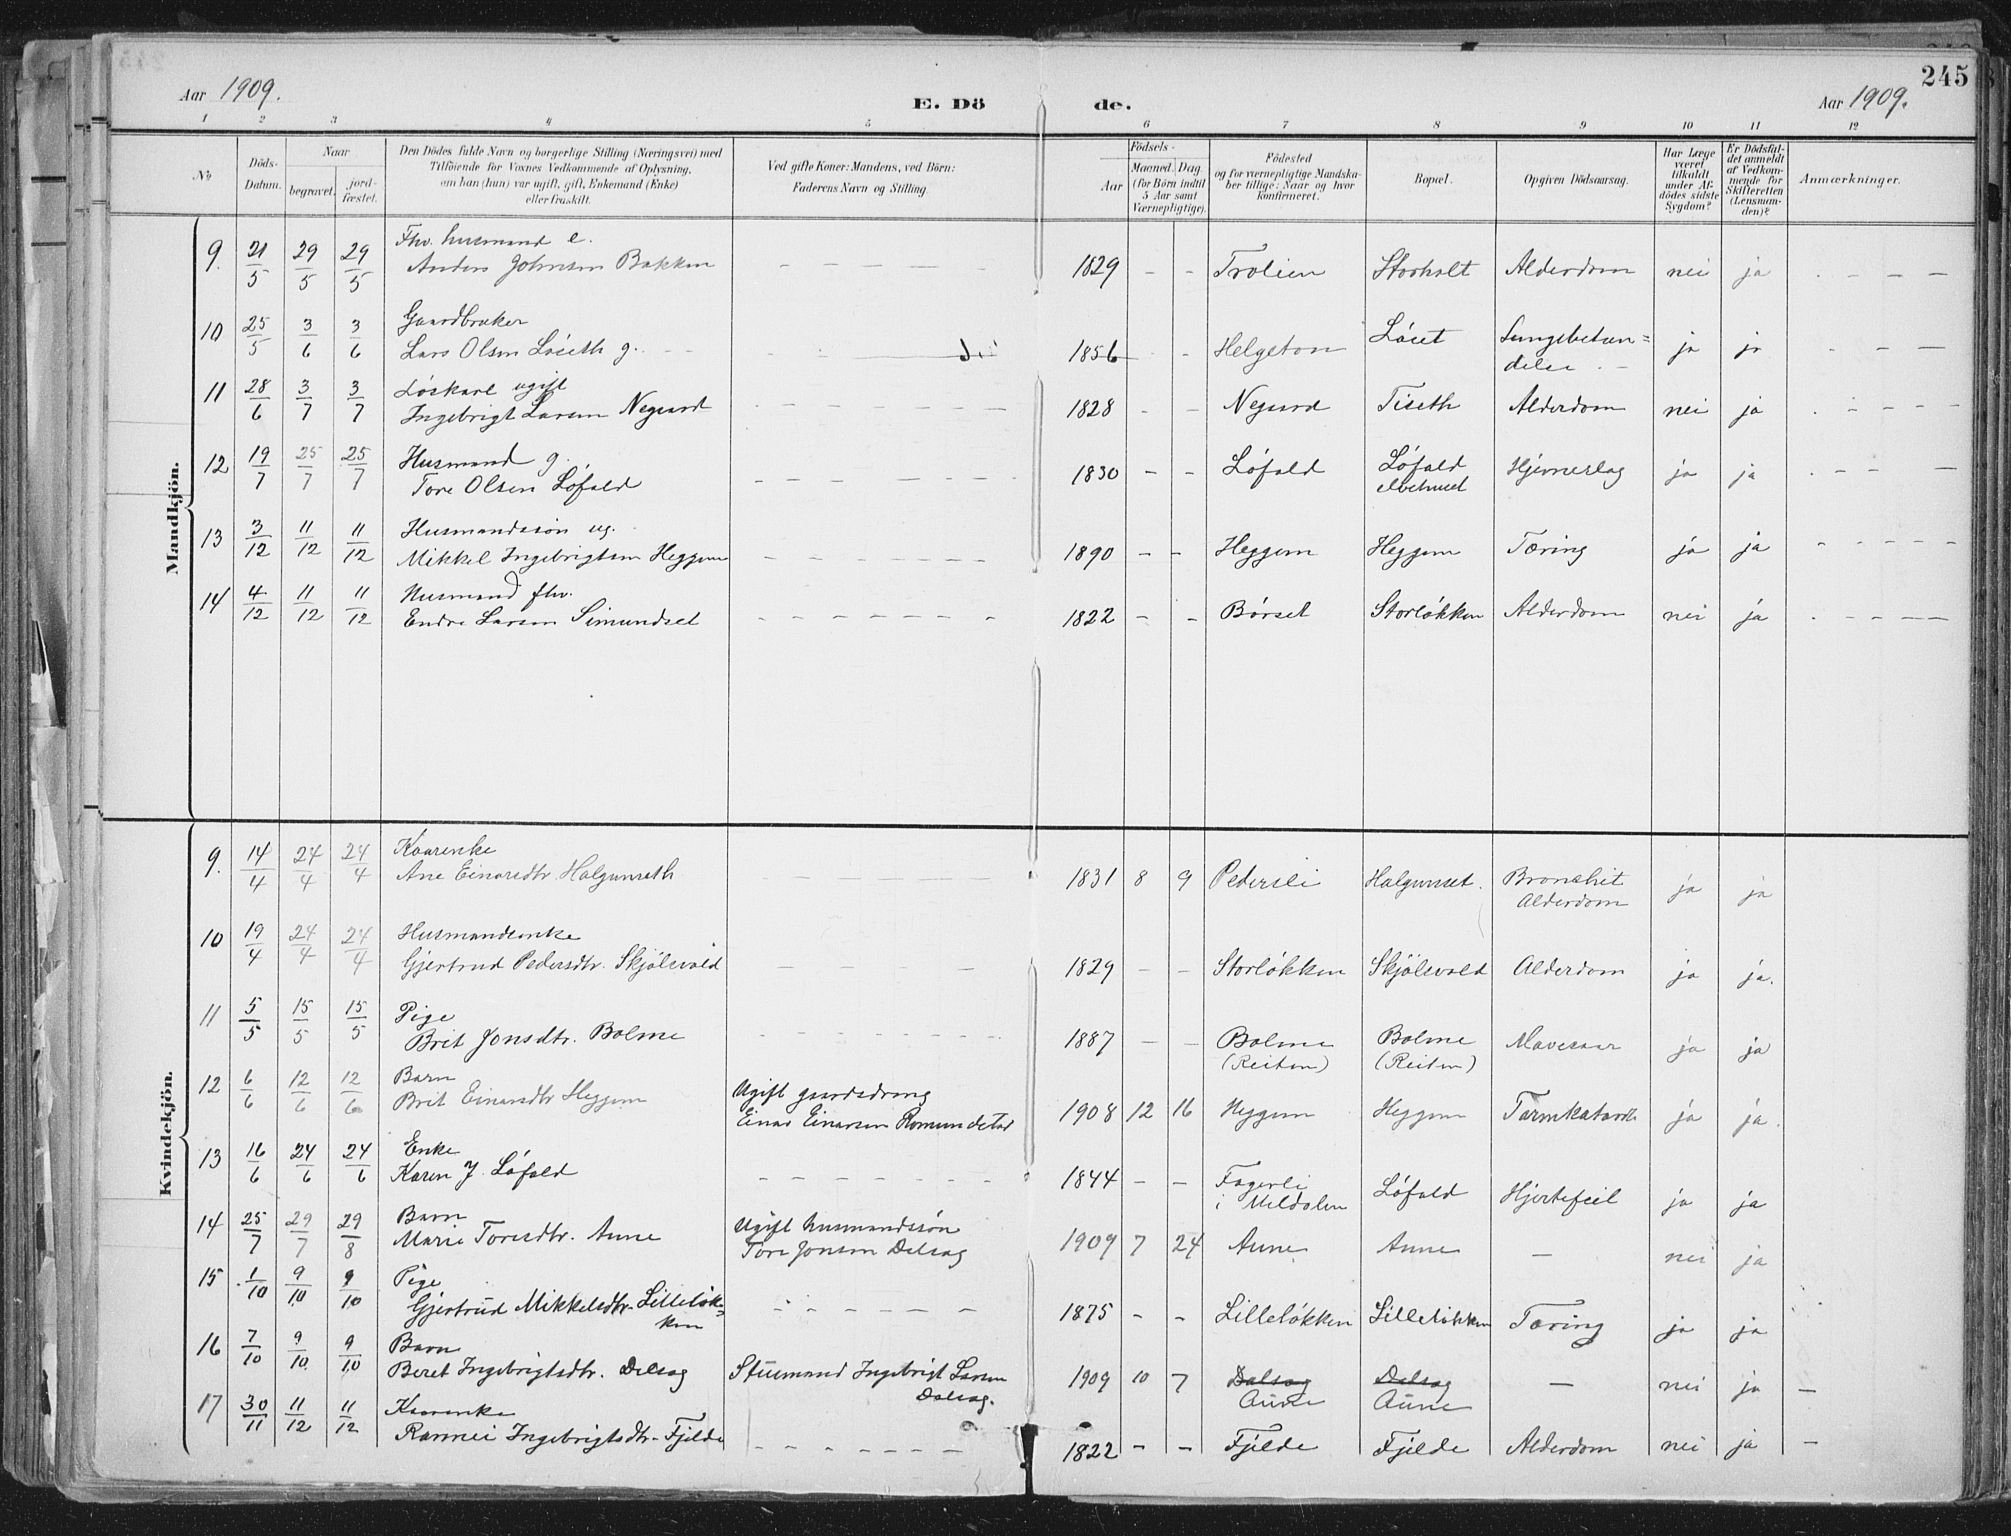 245
Aar 1909.
E. Dö de.
Aar 1909.
1 2 3 4 5 6 7 8 9 10 11 12
No
Döds-Datum.
Naar
begravet.
jord-fæstet.
Den Dödes fulde Navn og borgerlige Stilling (Næringsvei) med
Tilföiende for Voxnes Vedkommende af Oplysning,
om han (hun) var ugift, gift, Enkemand (Enke)
eller fraskilt.
Ved gifte Koner: Mandens, ved Börn:
Faderens Navn og Stilling.
Födsels-
Aar
Maaned. Dag.
(for Börn indtil
5 Aar samt
Værnepligtige).
Födested
og for værnepligtige Mandska-
ber tillige: Naar og hvor
Konfirmeret.
Bopæl.
Opgiven Dödsaarsag.
Har Læge
været
tilkaldt
under Af-
dödes sidste
Sygdom?
Er Dödsfal-
det anmeldt
af Vedkom-
mende for
Skifteretten
(Lensman-
den)?
Anmærkninger.
Mandkjön.
9. 21/5 29/5 29/5 Fhv. husmand e.
Anders Johnsen Bakken – – – – 1829 – – Trolien Storholt Alderdom nei ja – – – –
10 25/5 3/6 3/6 Gaardbruker
Lars Olsen Löseth g. 1856 – Helgeton Löset Lungebetæn=
delse ja ja – – –
11 28/6 3/7 3/7 Löskarl ugift
Ingebrigt Larsen Negaard – – – – 1828 – – Negard Tiseth Alderdom nei ja – – – –
12 19/7 25/7 25/7 Husmand g.
Tore Olsen Löfald – – – – 1830 – – Löfald Löfald Hjerneslag ja ja – – –
13 3/12 11/12 11/12 Husmandssön ug.
Mikkel Ingebrigtsen Heggem – – – – 1890 – – Heggem Heggem Tæring ja ja – – – –
14 4/12 11/12 11/12 Husmand fhv.
Endre Larsen Simundset – – – – 1822 – – Börset Storlökken Alderdom nei ja – – – –
Kvindekjön.
9. 14/4 24/4 24/4 Kaarenke
Ane Einarsdtr Halgunseth – – – – 1831 8 9 Pedersli Halgunset. Bronchit
Alderdom ja ja
10 19/4 24/4 24/4 Husmandsenke
Gjertrud Pedersdtr. Skjölsvold – – – – 1829 – – Storlökken Skjölsvold Alderdom ja ja.
11 5/5 15/5 15/5 Pige
Brit Jonsdtr. Bolme – – – – 1887 – – Bolme Bolme Mavesaar ja ja
(Reiten) (Reiten)
12 6/6 12/6 12/6 Barn
Brit Einarsdtr Heggem Ugift gaardsdreng
Einar Einarsen Romundstad 1908 12 16 Heggem Heggem Tarmkatarrh ja ja.
13 16/6 24/6 24/6 Enke
Karen J. Löfald – – – – 1844 – – Fagerli
i Meldalen Löfald Hjertefeil ja ja
14 25/7 29/7 29/8 Barn
Marie Toresdtr. Aune Ugift husmandssön
Tore Jonsen Dalsag 1909 7 24 Aune Aune – nei ja
15 1/10 9/10 9/10 Pige
Gjertrud Mikkelsdtr. Lillelök-
ken – – – – 1875 – – Lillelökken Lillelökken Tæring ja ja
16 7/10 9/10 9/10 Barn
Beret Ingebrigtsdtr. Dalsag Stuemand Ingebrigt Larsen
Dalsag. 1909 10 7 Dalsag Dalsag – nei ja –
Aune Aune
17 30/11 11/12 11/12 Kaarenke
Rannei Ingebrigtsdtr. Fjelde – – – – 1822 – – Fjelde Fjelde Alderdom nei ja –